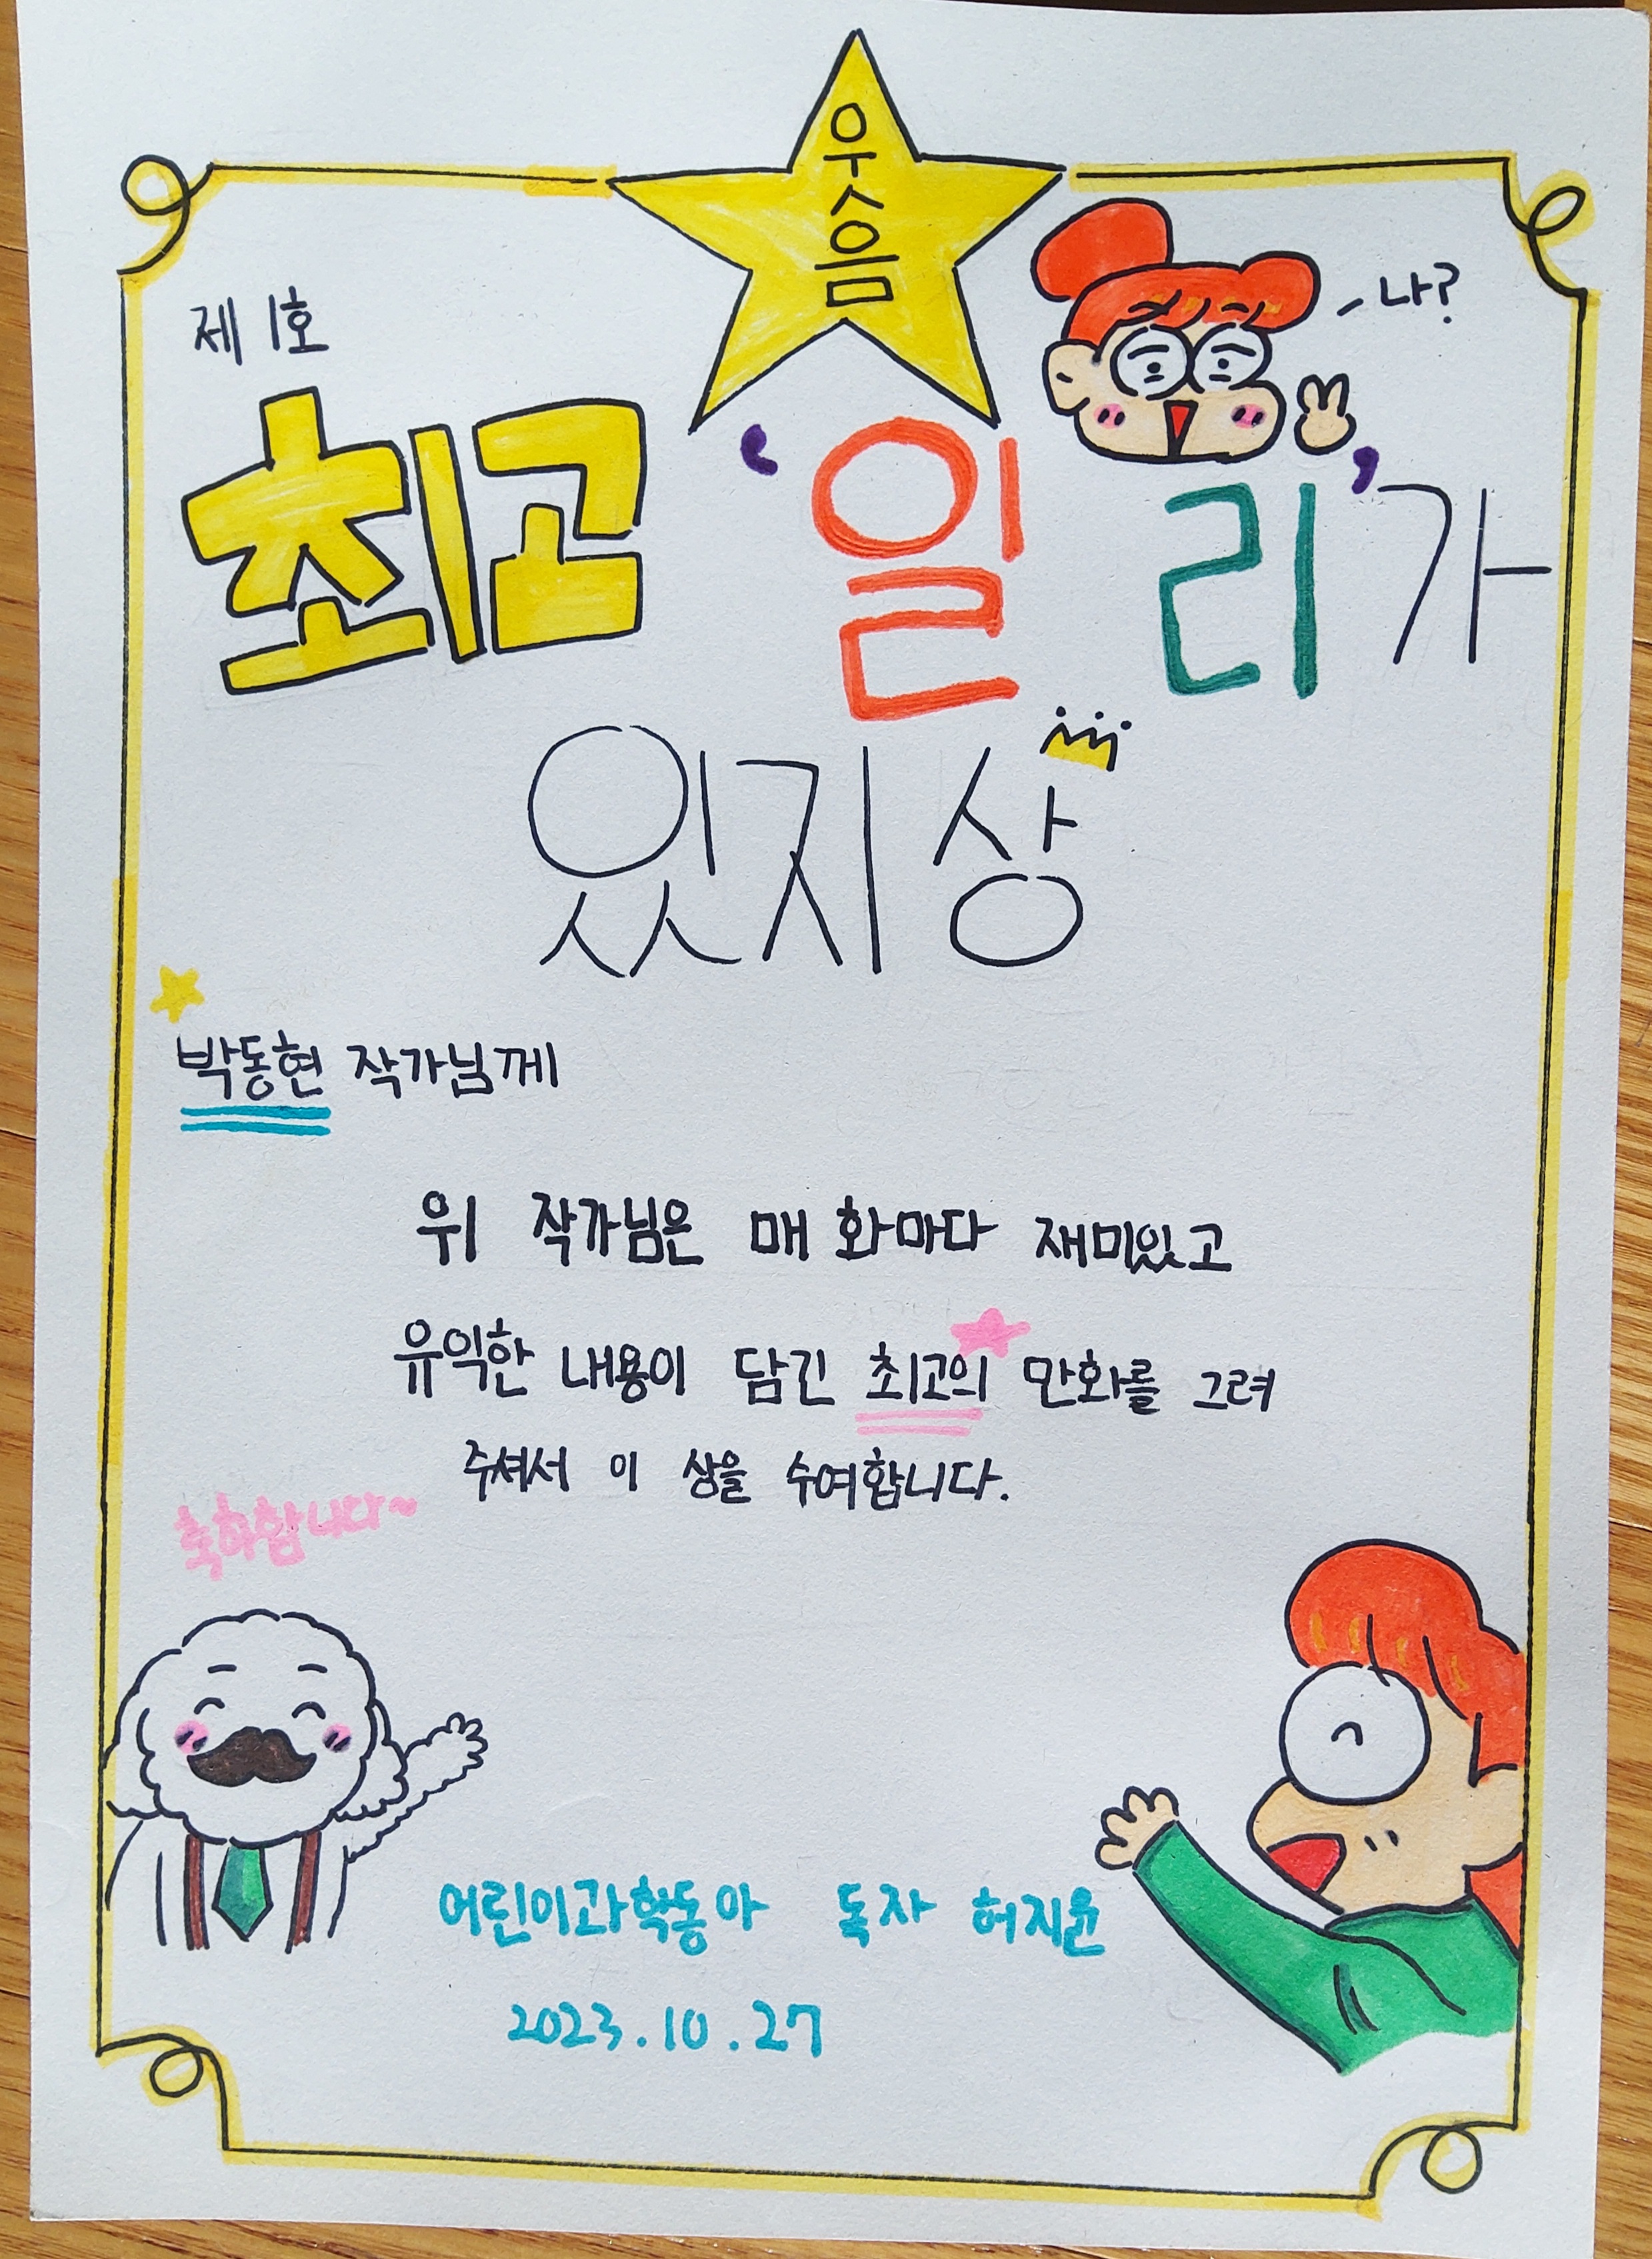 우승
제 1호
나?
최고 '일리'가
있지상
박동현 작가님께
위 작가님은 매 화마다 재미있고
유익한 내용이 담긴 최고의 만화를 그려
주셔서 이 상을 수여합니다.
축하합니다~
어린이과학동아 독자 허지윤
2023.10.27